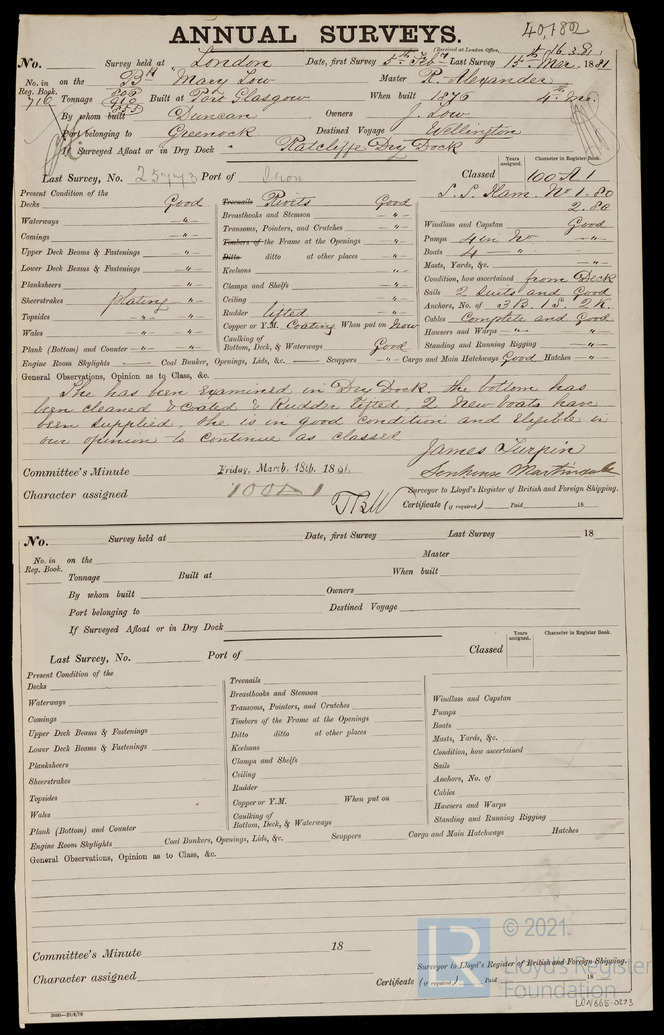 40,182
ANNUAL SURVEYS.
(Received at London Office, 16.3.81
No. Survey held at London Date, first Survey 5th Feby Last Survey 15th Mar. 1881
No. in Reg. Book. on the Bk Mary Low Master R. Alexander
710 Tonnage Built at Port Glasgow When built 1876 4th Mo.
By whom built Duncan Owners J. Low
Port belonging to Greenock Destined Voyage Wellington
If Surveyed Afloat or in Dry Dock Ratcliffe Dry Dock
Years assigned. Character in Register Book.
Last Survey, No. 25773 Port of Iron Classed 100 A 1
S. S. Ham. No 1. 80
2.80
Present Condition of the
Decks Good Treenails Rivets Good Windlass and Capstan Good
Waterways -"- Breasthooks and Stemson -"- Pumps 4 in No -"-
Comings -"- Transoms, Pointers, and Crutches -"- Boats 4 -"-
Upper Deck Beams & Fastenings -"- Timbers of the Frame at the Openings -"- Masts, Yards, &c. -"-
Lower Deck Beams & Fastenings -"- Ditto ditto at other places -"- Condition, how ascertained from Deck
Planksheers -"- Keelsons -"- Sails 2 Suits and Good
Sheerstrakes plating -"- Clamps and Shelfs -"- Anchors, No. of 3 B. 1 S. 2 K.
Topsides -"- -"- Ceiling -"- Cables Complete and Good
Wales -"- Rudder lifted -"- Hawsers and Warps -"- "
Plank (Bottom) and Counter -"- -"- Copper or Y.M. Coating When put on Now Standing and Running Rigging -"-
Caulking of Bottom, Deck, & Waterways Good
Engine Room Skylights -"- Coal Bunkers, Openings, Lids, &c. Scuppers -"- Cargo and Main Hatchways Good Hatches -"-
General Observations, Opinion as to Class, &c.
She has been examined in Dry Dock, the bottom has
been cleaned & Coated & Rudder lifted, 2 New boats have
been supplied, she is in good Condition and Eligible in
our opinion to Continue as classed
James Turpin
Committee's Minute Friday, March 18th. 1881.
Character assigned 100A1
Surveyor to Lloyd's Register of British and Foreign Shipping.
Certificate (if required) Paid 18
No. Survey held at Date, first Survey Last Survey 18
No. in Reg. Book. on the Master
Tonnage Built at When built
By whom built Owners
Port belonging to Destined Voyage
If Surveyed Afloat or in Dry Dock
Years assigned. Character in Register Book.
Last Survey, No. Port of Classed
Present Condition of the
Decks Treenails
Waterways Breasthooks and Stemson Windlass and Capstan
Comings Transoms, Pointers, and Crutches Pumps
Upper Deck Beams & Fastenings Timbers of the Frame at the Openings Boats
Lower Deck Beams & Fastenings Ditto ditto at other places Masts, Yards, &c.
Planksheers Keelsons Condition, how ascertained
Sheerstrakes Clamps and Shelfs Sails
Topsides Ceiling Anchors, No. of
Wales Rudder Cables
Plank (Bottom) and Counter Copper or Y.M. When put on Hawsers and Warps
Caulking of Bottom, Deck, & Waterways Standing and Running Rigging
Engine Room Skylights Coal Bunkers, Openings, Lids, &c. Scuppers Cargo and Main Hatchways Hatches
General Observations, Opinion as to Class, &c.
Committee's Minute 18
Character assigned
Surveyor to Lloyd's Register of British and Foreign Shipping.
Certificate (if required) Paid 18
LR © 2021
Lloyd's Register Foundation
LON/665-0273